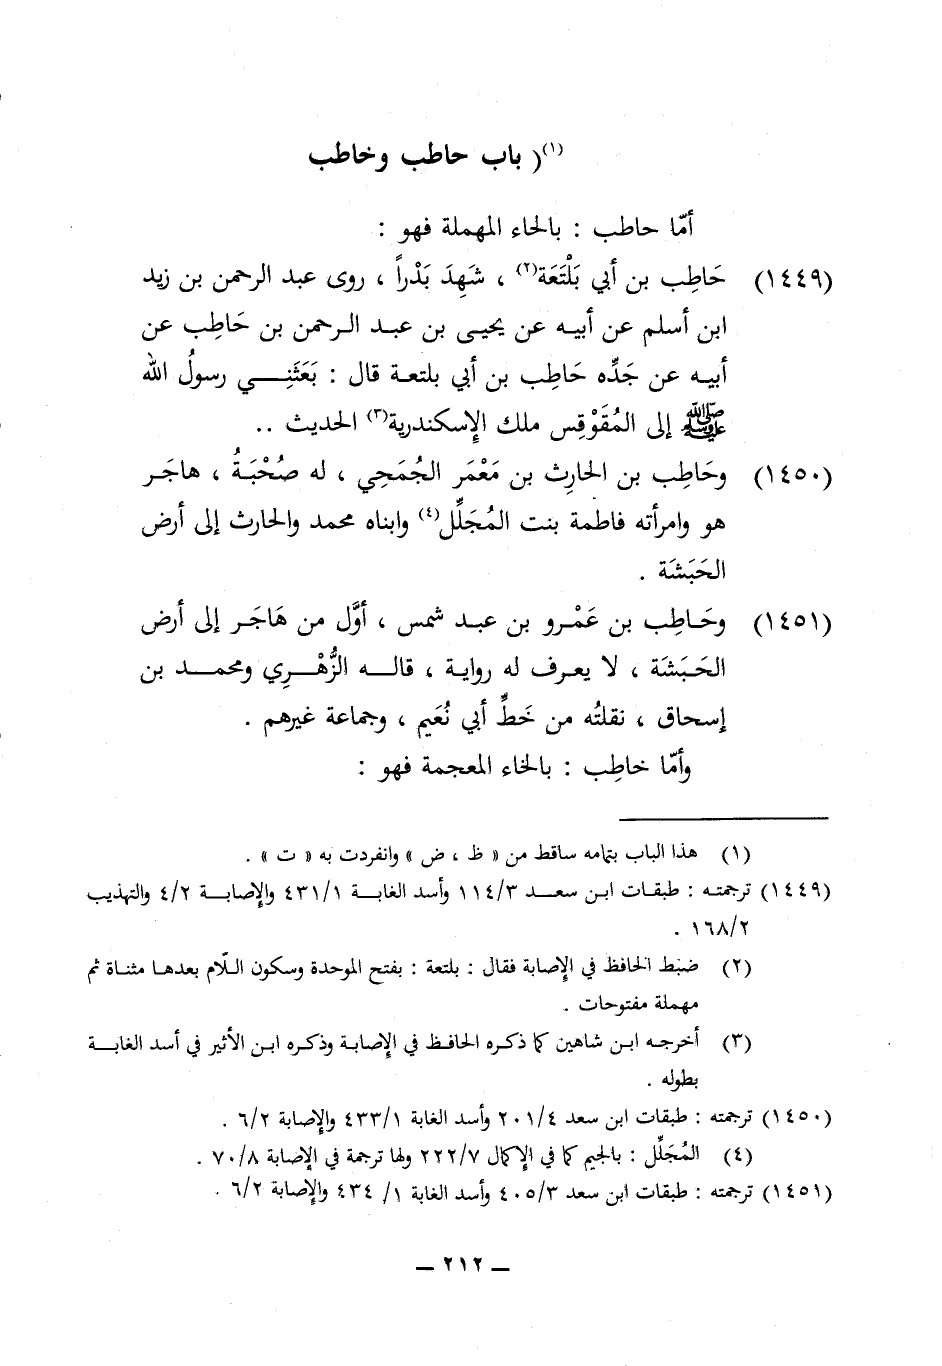 (١)( باب حاطب وخاطب
أمّا حاطب : بالحاء المهملة فهو :
(١٤٤٩) حَاطِب بن أبي بَلْتَعَة(٢) ، شَهِدَ بَدْراً ، روى عبد الرحمن بن زيد
ابن أسلم عن أبيه عن يحيى بن عبد الرحمن بن حَاطِب عن
أبيه عن جَدِّه حَاطِب بن أبي بلتعة قال : بَعَثَنِي رسولُ الله
ﷺ إلى المُقَوْقِس ملك الإسكندرية(٣) الحديث ..
(١٤٥٠) وحَاطِب بن الحارِث بن مَعْمَر الجُمَحِي ، له صُحْبَةُ ، هاجَر
هو وامرأته فاطمة بنت المُجَلِّل(٤) وابناه محمد والحارث إلى أرض
الحَبَشَة .
(١٤٥١) وحَاطِب بن عَمْرو بن عبد شمس ، أوَّل من هَاجَر إلى أرض
الحَبَشَة ، لا يعرف له رواية ، قاله الزُّهْرِي ومحمد بن
إسحاق ، نقلتُه من خَطِّ أبي نُعَيم ، وجماعة غيرهم .
وأمّا خاطِب : بالخاء المعجمة فهو :
(١) هذا الباب بتمامه ساقط من « ظ ، ض » وانفردت به « ت » .
(١٤٤٩) ترجمته : طبقات ابن سعد ١١٤/٣ وأسد الغابة ٤٣١/١ والإصابة ٤/٢ والتهذيب
١٦٨/٢ .
(٢) ضبط الحافظ في الإصابة فقال : بلتعة : بفتح الموحدة وسكون اللّام بعدها مثناة ثم
مهملة مفتوحات .
(٣) أخرجه ابن شاهين كما ذكره الحافظ في الإصابة وذكره ابن الأثير في أسد الغابة
بطوله .
(١٤٥٠) ترجمته : طبقات ابن سعد ٢٠١/٤ وأسد الغابة ٤٣٣/١ والإصابة ٦/٢ .
(٤) المُجَلِّل : بالجيم كما في الإكمال ٢٢٢/٧ ولها ترجمة في الإصابة ٧٠/٨ .
(١٤٥١) ترجمته : طبقات ابن سعد ٤٠٥/٣ وأسد الغابة ١/ ٤٣٤ والإصابة ٦/٢ .
— ٢١٢ —